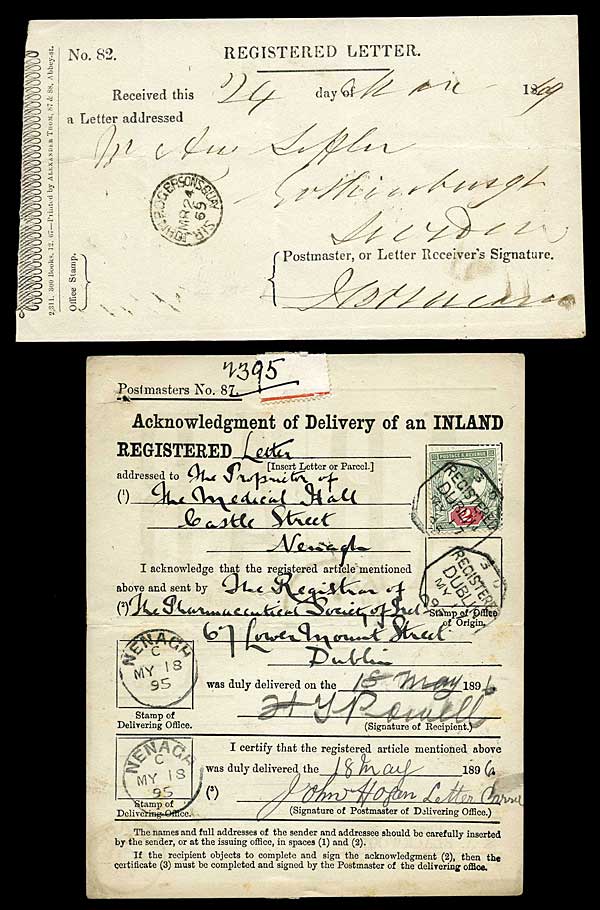 No. 82.
REGISTERED LETTER.
Received this 24 day of Mar 1869
a Letter addressed
Mr
Gothenburgh
Sweden
SIR JOHN ROGERSONS QUAY
MR 24
69
Postmaster, or Letter Receiver's Signature.
Office Stamp.
2,311. 300 Books. 12. 67—Printed by ALEXANDER THOM, 87 & 88, Abbey-st.
2395
Postmasters No. 87.
Acknowledgment of Delivery of an INLAND
REGISTERED Letter
[Insert Letter or Parcel.]
addressed to The Proprietor of
(1) The Medical Hall
Castle Street
Nenagh
POSTAGE & REVENUE
REGISTERED
DUBLIN
I acknowledge that the registered article mentioned
above and sent by The Registrar of
(2) The Pharmaceutical Society of Irel
67 Lower Mount Street
Dublin
REGISTERED
DUBLIN
MY
Stamp of Office
of Origin.
NENAGH
C
MY 18
95
Stamp of
Delivering Office.
was duly delivered on the 18 May 1896
H J Powell
(Signature of Recipient.)
I certify that the registered article mentioned above
was duly delivered on the 18 May 1896.
NENAGH
C
MY 18
95
Stamp of
Delivering Office.
(3) John Hogan Letter Carrier
(Signature of Postmaster of Delivering Office.)
The names and full addresses of the sender and addressee should be carefully inserted
by the sender, or at the issuing office, in spaces (1) and (2).
If the recipient objects to complete and sign the acknowledgment (2), then the
certificate (3) must be completed and signed by the Postmaster of the delivering office.